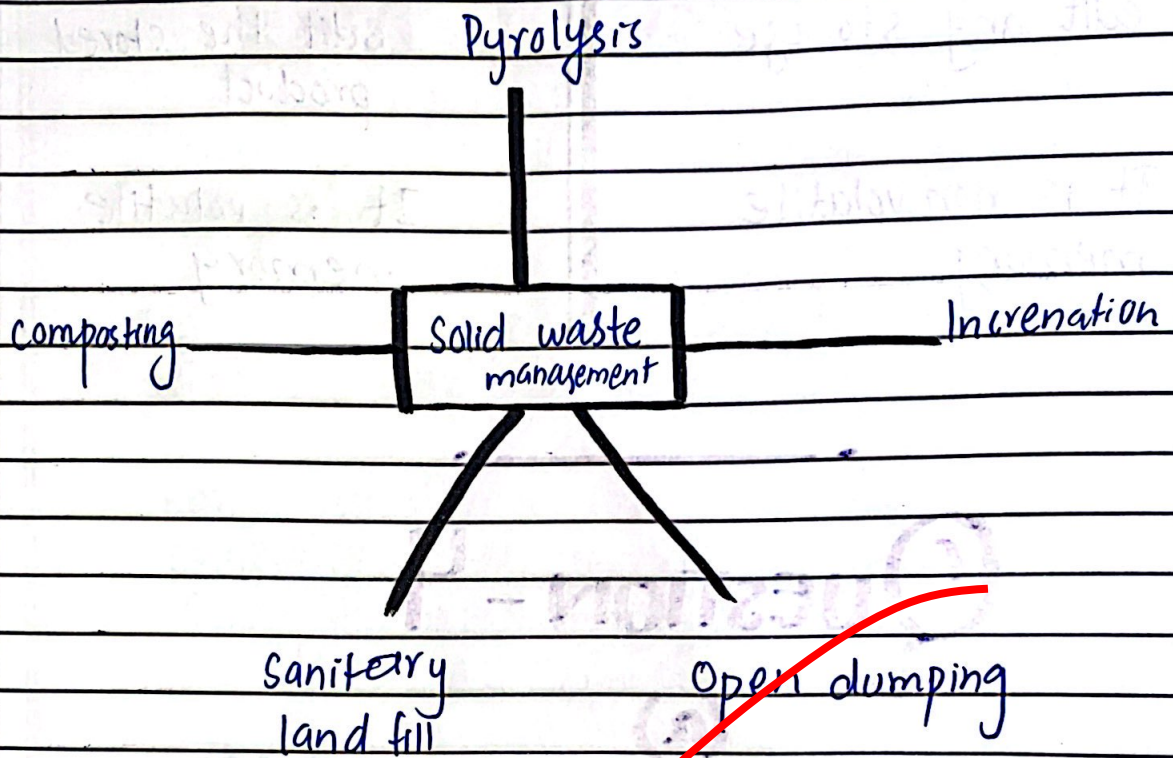 Pyrolysis
composting
Solid waste
management
Increnation
sanitary
land fill
Open dumping